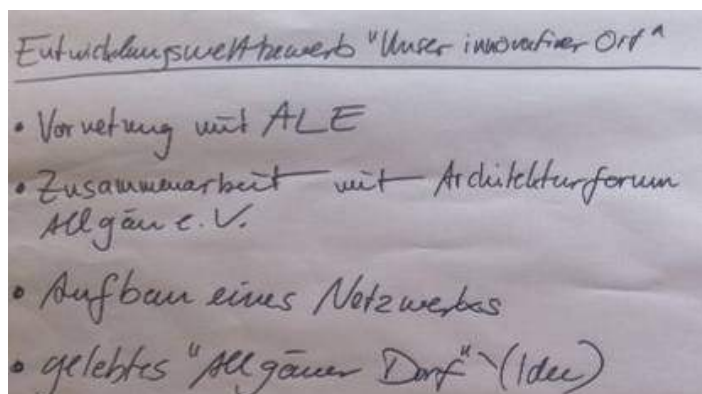 Entwicklungswettbewerb "Unser innovativer Ort"
• Vernetzung mit ALE
• Zusammenarbeit mit Architekturforum
Allgäu e.V.
• Aufbau eines Netzwerkes
• gelebtes "Allgäuer Dorf" (Idee)